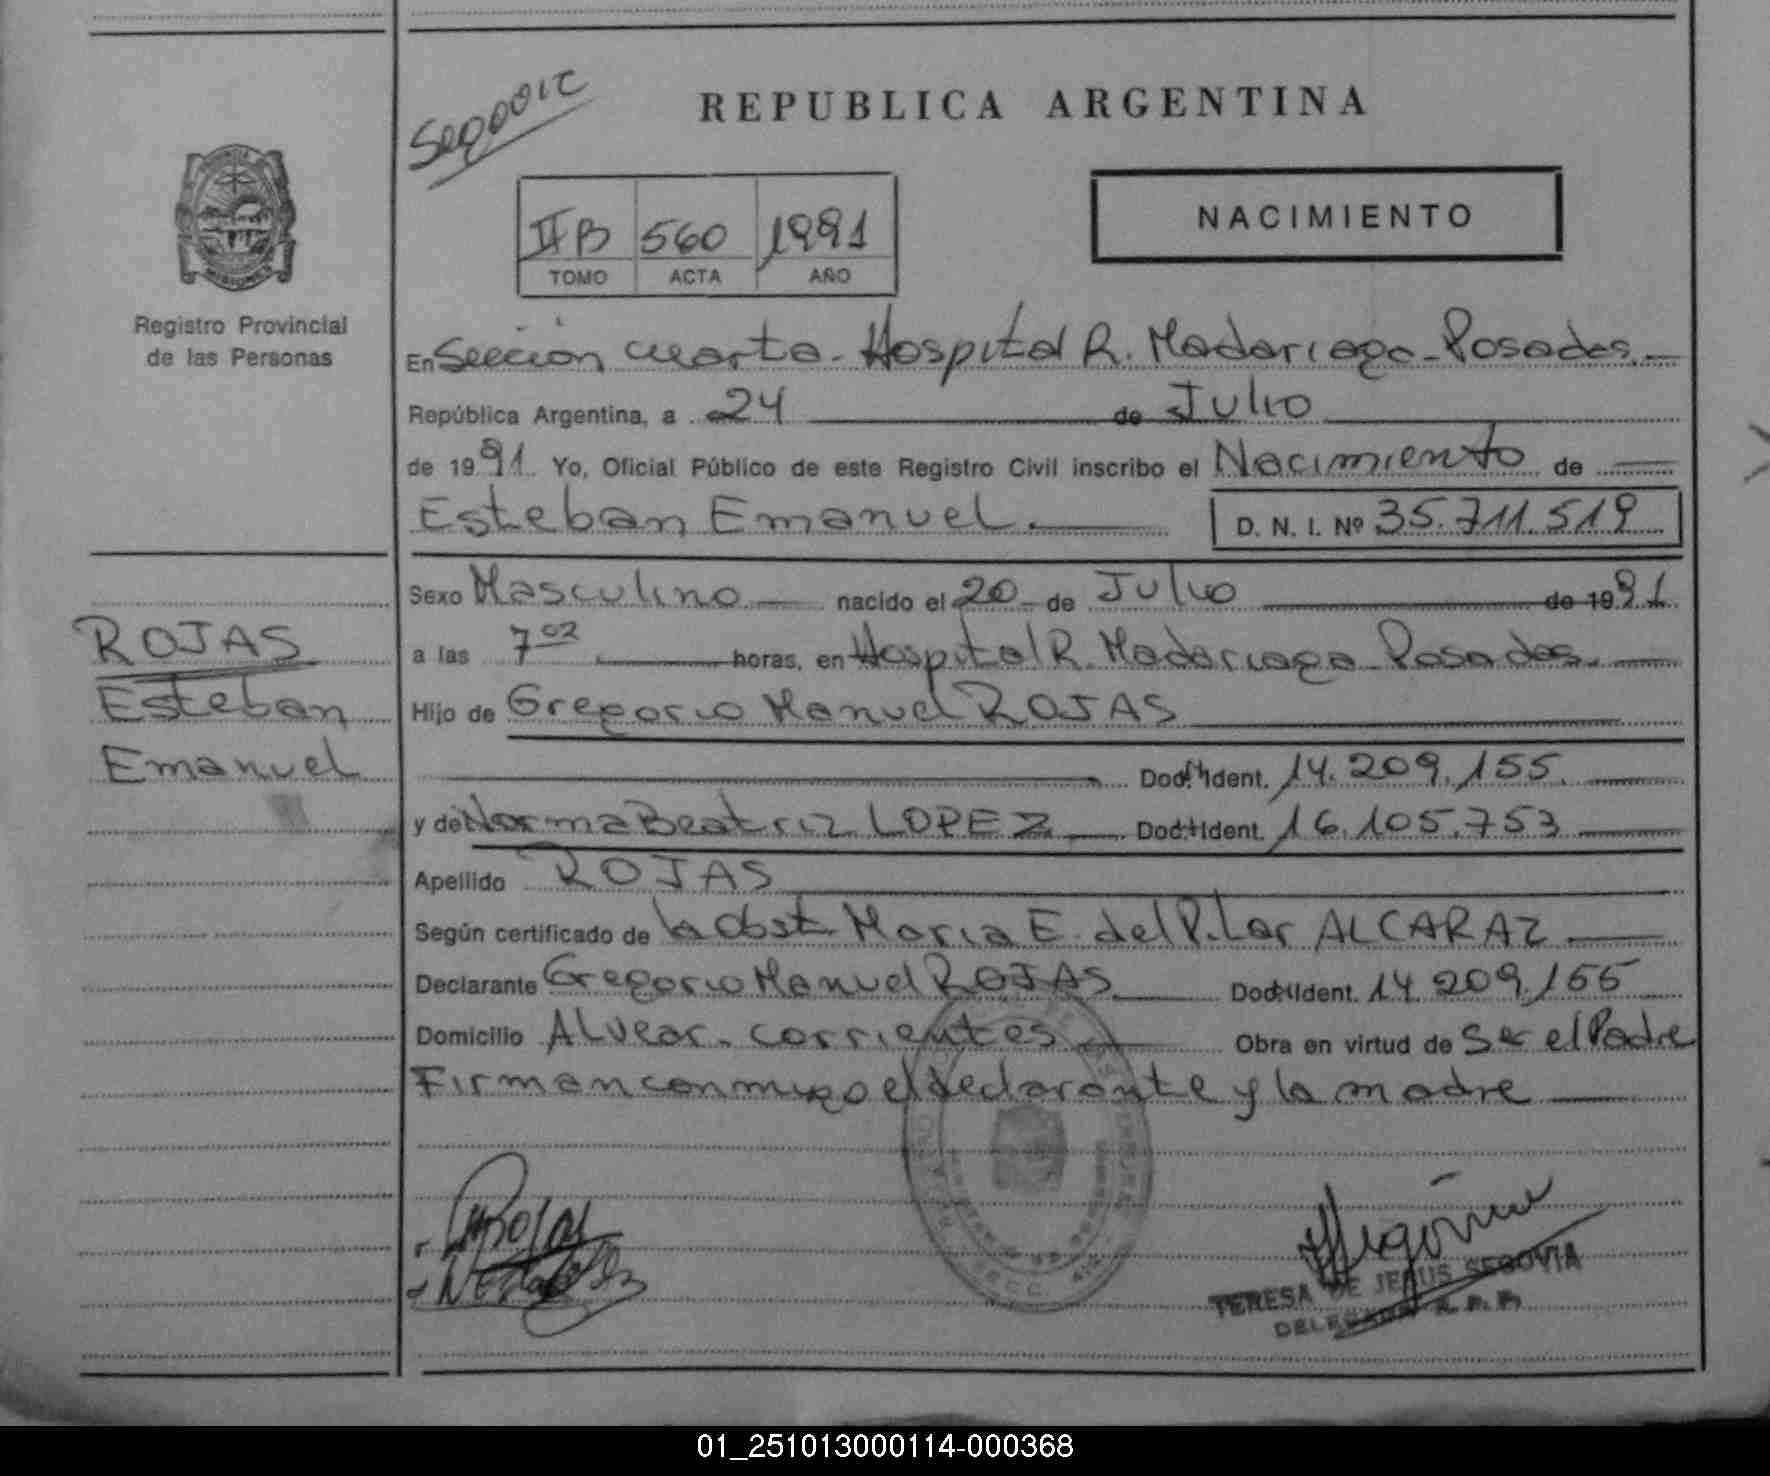 Segovia
REPUBLICA ARGENTINA
NACIMIENTO
IIB 560 1991
TOMO ACTA AÑO
Registro Provincial
de las Personas
En Sección cuarta - Hospital R. Madariaga - Posadas.
República Argentina, a 24 de Julio
de 1991 Yo, Oficial Público de este Registro Civil inscribo el Nacimiento de
Esteban Emanuel. D. N. I. Nº 35.711.519
ROJAS
Esteban
Emanuel
Sexo Masculino nacido el 20 de Julio de 1991
a las 7 02 horas, en Hospital R. Madariaga - Posadas.
Hijo de Gregorio Manuel ROJAS
Ident. 14.209.155.
y de Norma Beatriz LOPEZ Ident. 16.105.753
Apellido ROJAS
Según certificado de la Obst. Maria E. del Pilar ALCARAZ
Declarante Gregorio Manuel ROJAS Ident. 14.209.155
Domicilio Alvear - Corrientes Obra en virtud de Ser el Padre
Firman conmigo el declarante y la madre
TERESA DE JESUS SEGOVIA
DELEGADA R. P. P.
01_251013000114-000368